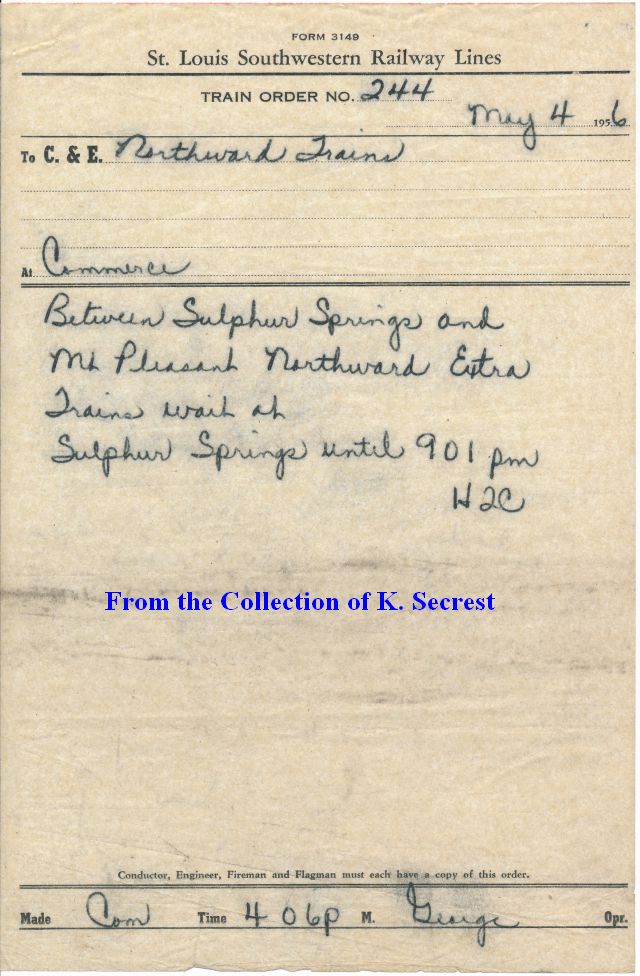 FORM 3149
St. Louis Southwestern Railway Lines
TRAIN ORDER NO. 244
May 4 1956
To C. & E. Northward Trains
At Commerce
Between Sulphur Springs and
Mt Pleasant Northward Extra
Trains wait at
Sulphur Springs until 901 pm
HJC
From the Collection of K. Secrest
Conductor, Engineer, Fireman and Flagman must each have a copy of this order.
Made Com Time 4 06p M. George Opr.